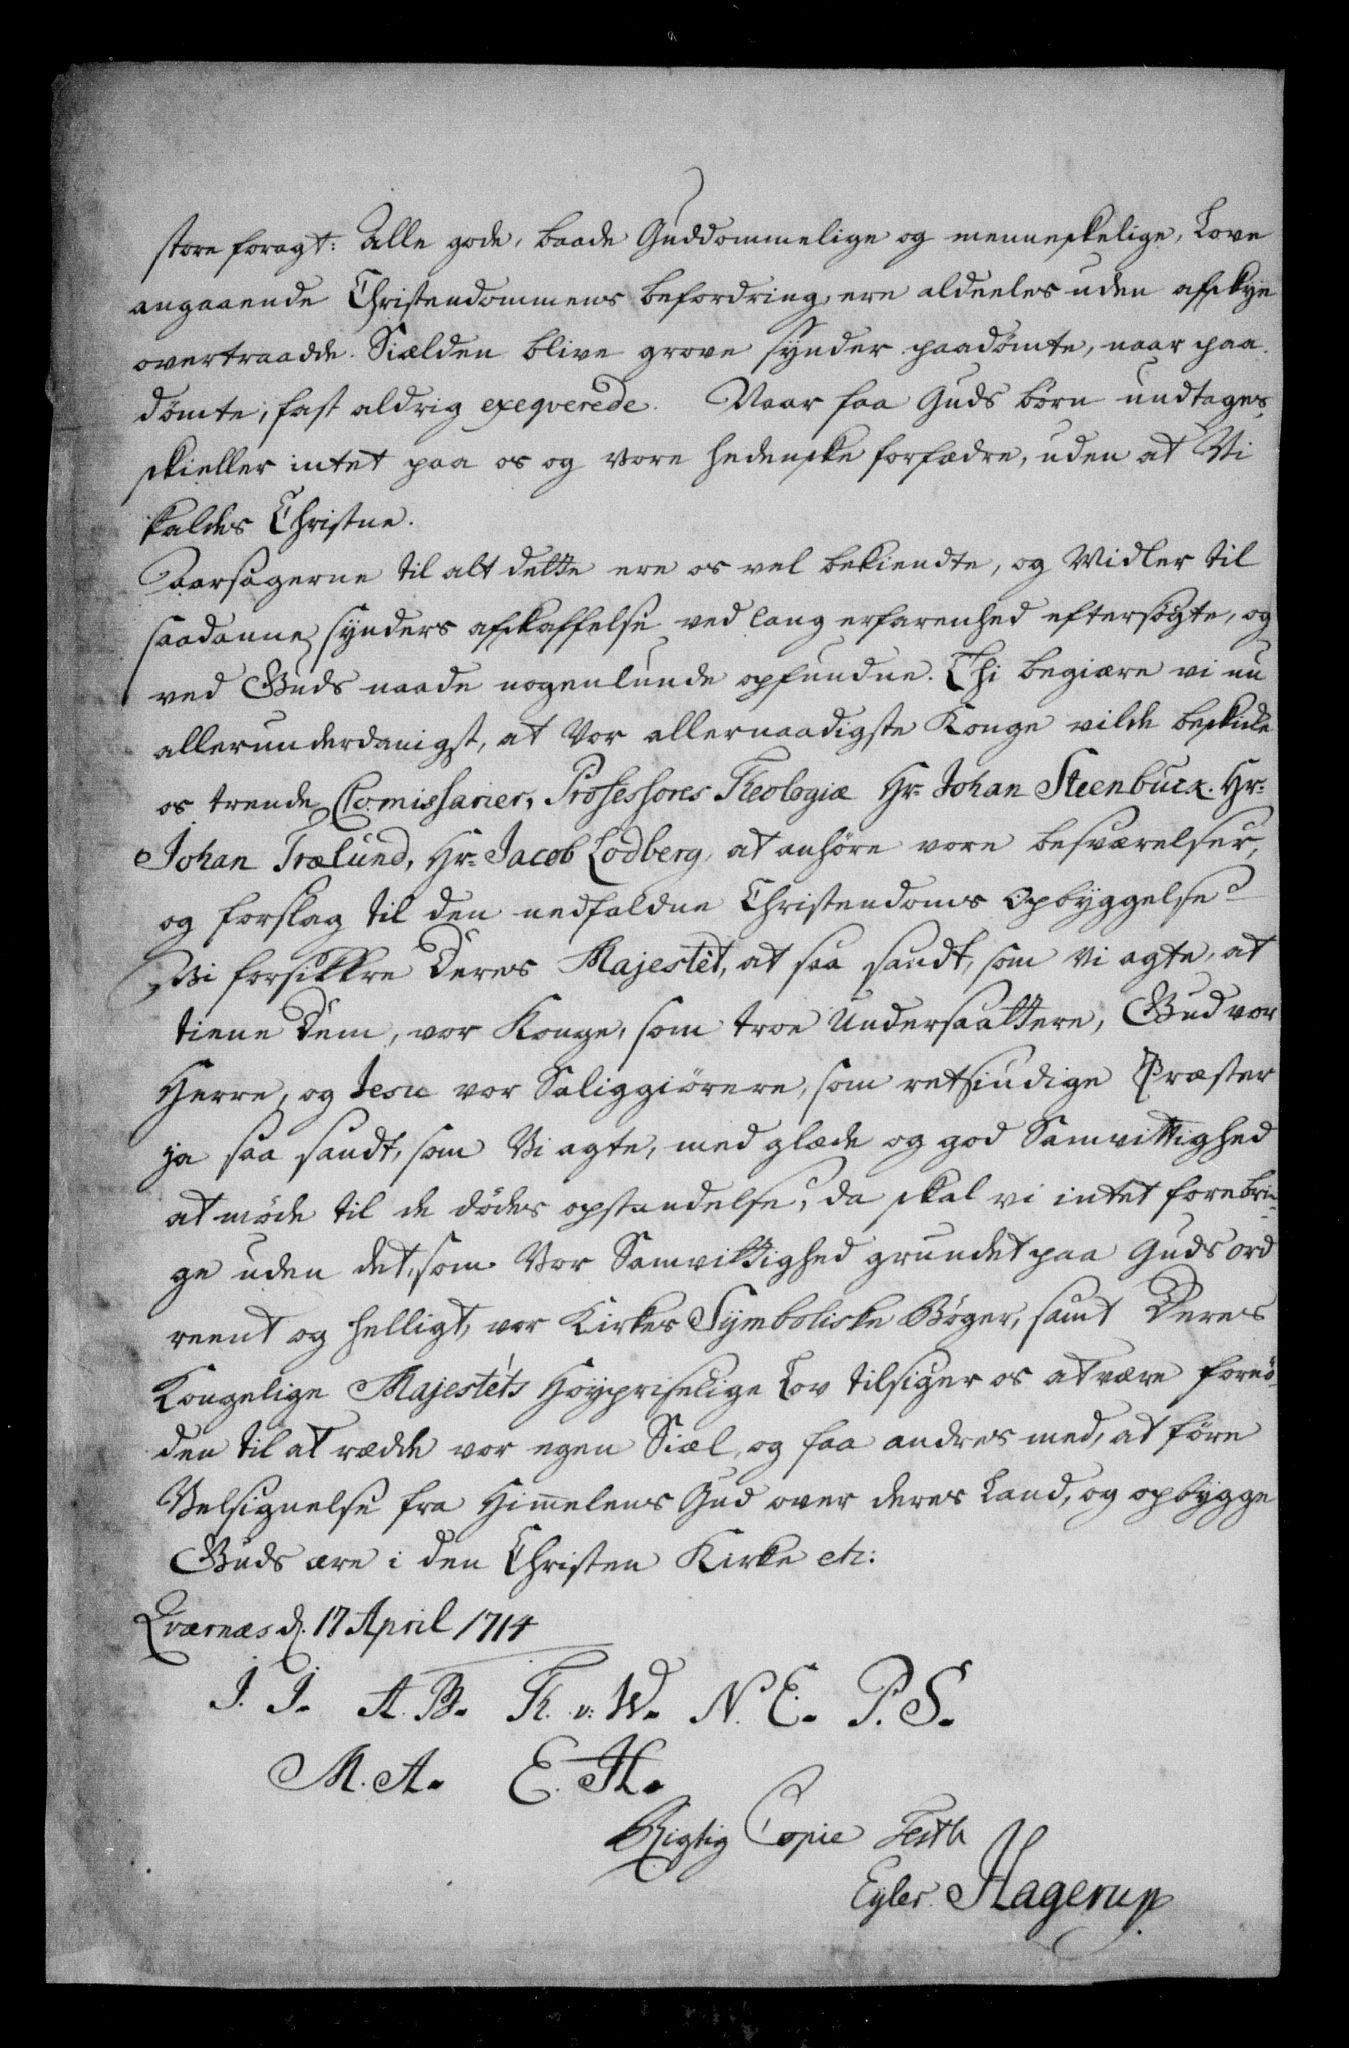 store foragt: Alle gode, baade Guddommelige og menneskelige, Love
angaaende Christendommens befordring, ere aldeeles uden afskye
overtraadde. Siælden blive grove synder paadømte, naar paa
dømte, fast aldrig exeqverede. Naar faa Guds børn undtages,
skieller intet paa os og vore hedenske forfædre, uden at Vi
kaldes Christne.
Aarsagerne til alt dette ere os vel bekiendte, og Midler til
saadanne synders afskaffelse ved lang erfarenhed eftersøgte, og
ved Guds naade nogenlunde opfundne. Thi begiære vi nu
allerunderdanigst, at Vor allernaadigste Konge vilde beskikke
os trende Comissarier, Professores Theologiæ Hr. Johan Steenbuck. Hr:
Johan Trælund, Hr. Jacob Lodberg, at anhøre vore besværelser,
og forslag til den nedfaldne Christendoms Opbyggelse.
Vi forsikkre Deres Majestêt, at saa sandt, som Vi agte, at
tiene Dem, vor Konge, som troe Undersaattere, Gud vor
Herre, og Jesu vor Saliggiørere, som retsindige Præster
ja saa sandt, som Vi agte, med glæde og god Samvittighed
at møde til de dødes opstandelse, da skal vi intet forebrin-
ge uden det, som Vor Samvittighed grundet paa Guds ord
reent og helligt, vor Kirkes Symboliske Bøger, samt Deres
Kongelige Majestêts Høypriselige Lov tilsiger os at være fornø-
den til at rædde vor egen Siæl, og faa andres med, at føre
Velsignelse fra Himelens Gud over deres Land, og opbygge
Guds ære i den Christen Kirke etc:
Qværnæs d. 17 April 1714
J. J. A. B. Th. v: W. N. E. P. S.
M. A. E. H.
Rigtig Copie Test:
Eyler Hagerup